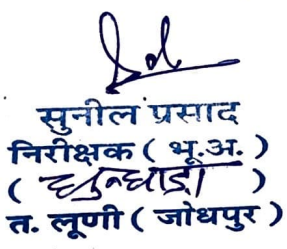 सुनील प्रसाद
निरीक्षक ( भू.अ. )
( धुन्धाड़ा )
त. लूणी ( जोधपुर )